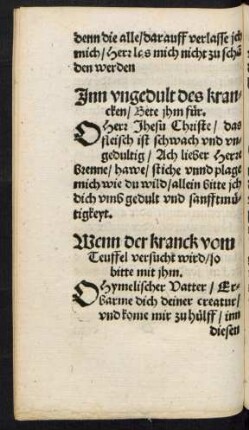 denn die alle/darauff verlasse jch
mich/Herr las mich nicht zu schan
den werden
Jnn vngedult des kran-
cken/Bete jhm für.
O Herr Jhesu Christe/das
fleisch ist schwach vnd vn
gedultig/Ach lieber Herre
brenne/hawe/stiche vnnd plage
mich wie du wild/allein bitte jch
dich vmb gedult vnd sanfftmü
tigkeyt.
Wenn der kranck vom
Teuffel versucht wird/so
bitte mit jhm.
O Hymelischer Vatter/Er-
barme dich deiner creatur/
vnd kome mir zu hülff/inn
diesen